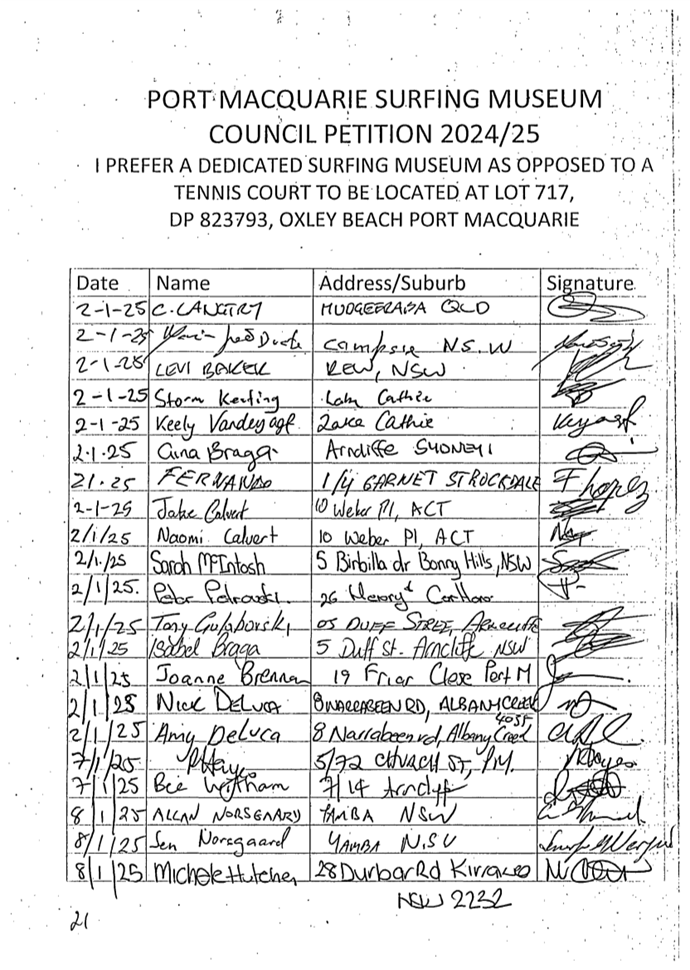 PORT MACQUARIE SURFING MUSEUM
COUNCIL PETITION 2024/25
I PREFER A DEDICATED SURFING MUSEUM AS OPPOSED TO A
TENNIS COURT TO BE LOCATED AT LOT 717,
DP 823793, OXLEY BEACH PORT MACQUARIE
Date Name Address/Suburb Signature
2-1-25 C. LANGTRY MUDGEERABA QLD
2-1-25 Campsie N.S.W
2-1-25 LEVI BAKER KEW, NSW
2-1-25 Storm Keating Lake Cathie
2-1-25 Keely Lake Cathie
2.1.25 Gina Braga Arncliffe SYDNEY
21.25 FERNANDO 1/4 GARNET ST ROCKDALE F Lopez
2-1-25 Jake Calvert 10 Weber Pl, ACT
2/1/25 Naomi Calvert 10 Weber Pl, ACT
2/1.25 Sarah McIntosh 5 Birbilla dr Bonny Hills, NSW
2/1/25. Peter 26
2/1/25 Tony DUFF STREE, ARNCLIFFE
2/1/25 Isabel Braga 5 Duff St. Arncliffe NSW
2/1/25 Joanne Brennan 19 Friar Close Port M
2/1/25 NICK DELUCA 8 NARRABEEN RD, ALBANY CREEK
4035
2/1/25 Amy DeLuca 8 Narrabeen rd, Albany Creek
7/1/25 P Hayes 5/72 CHURCH ST, P.M. Hayes
7/1/25 Bec 7/14
8/1/25 ALLAN NORSGAARD YAMBA NSW
8/1/25 Sen Norsgaard YAMBA N.S.W
8/1/25 Michele Hutcher 28 Durbar Rd Kirrawee
NSW 2232
21